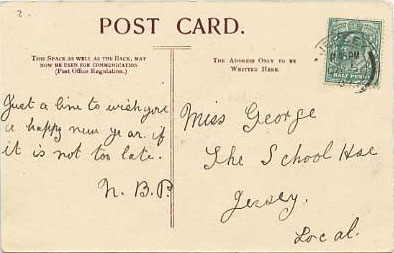 2.
POST CARD.
THIS SPACE AS WELL AS THE BACK, MAY
NOW BE USED FOR COMMUNICATION
(Post Office Regulation.)
THE ADDRESS ONLY TO BE
WRITTEN HERE.
HALF PENNY
Just a line to wish you
a happy new year if
it is not too late.
N. B. P.
Miss George
The School Hse
Jersey.
Local.